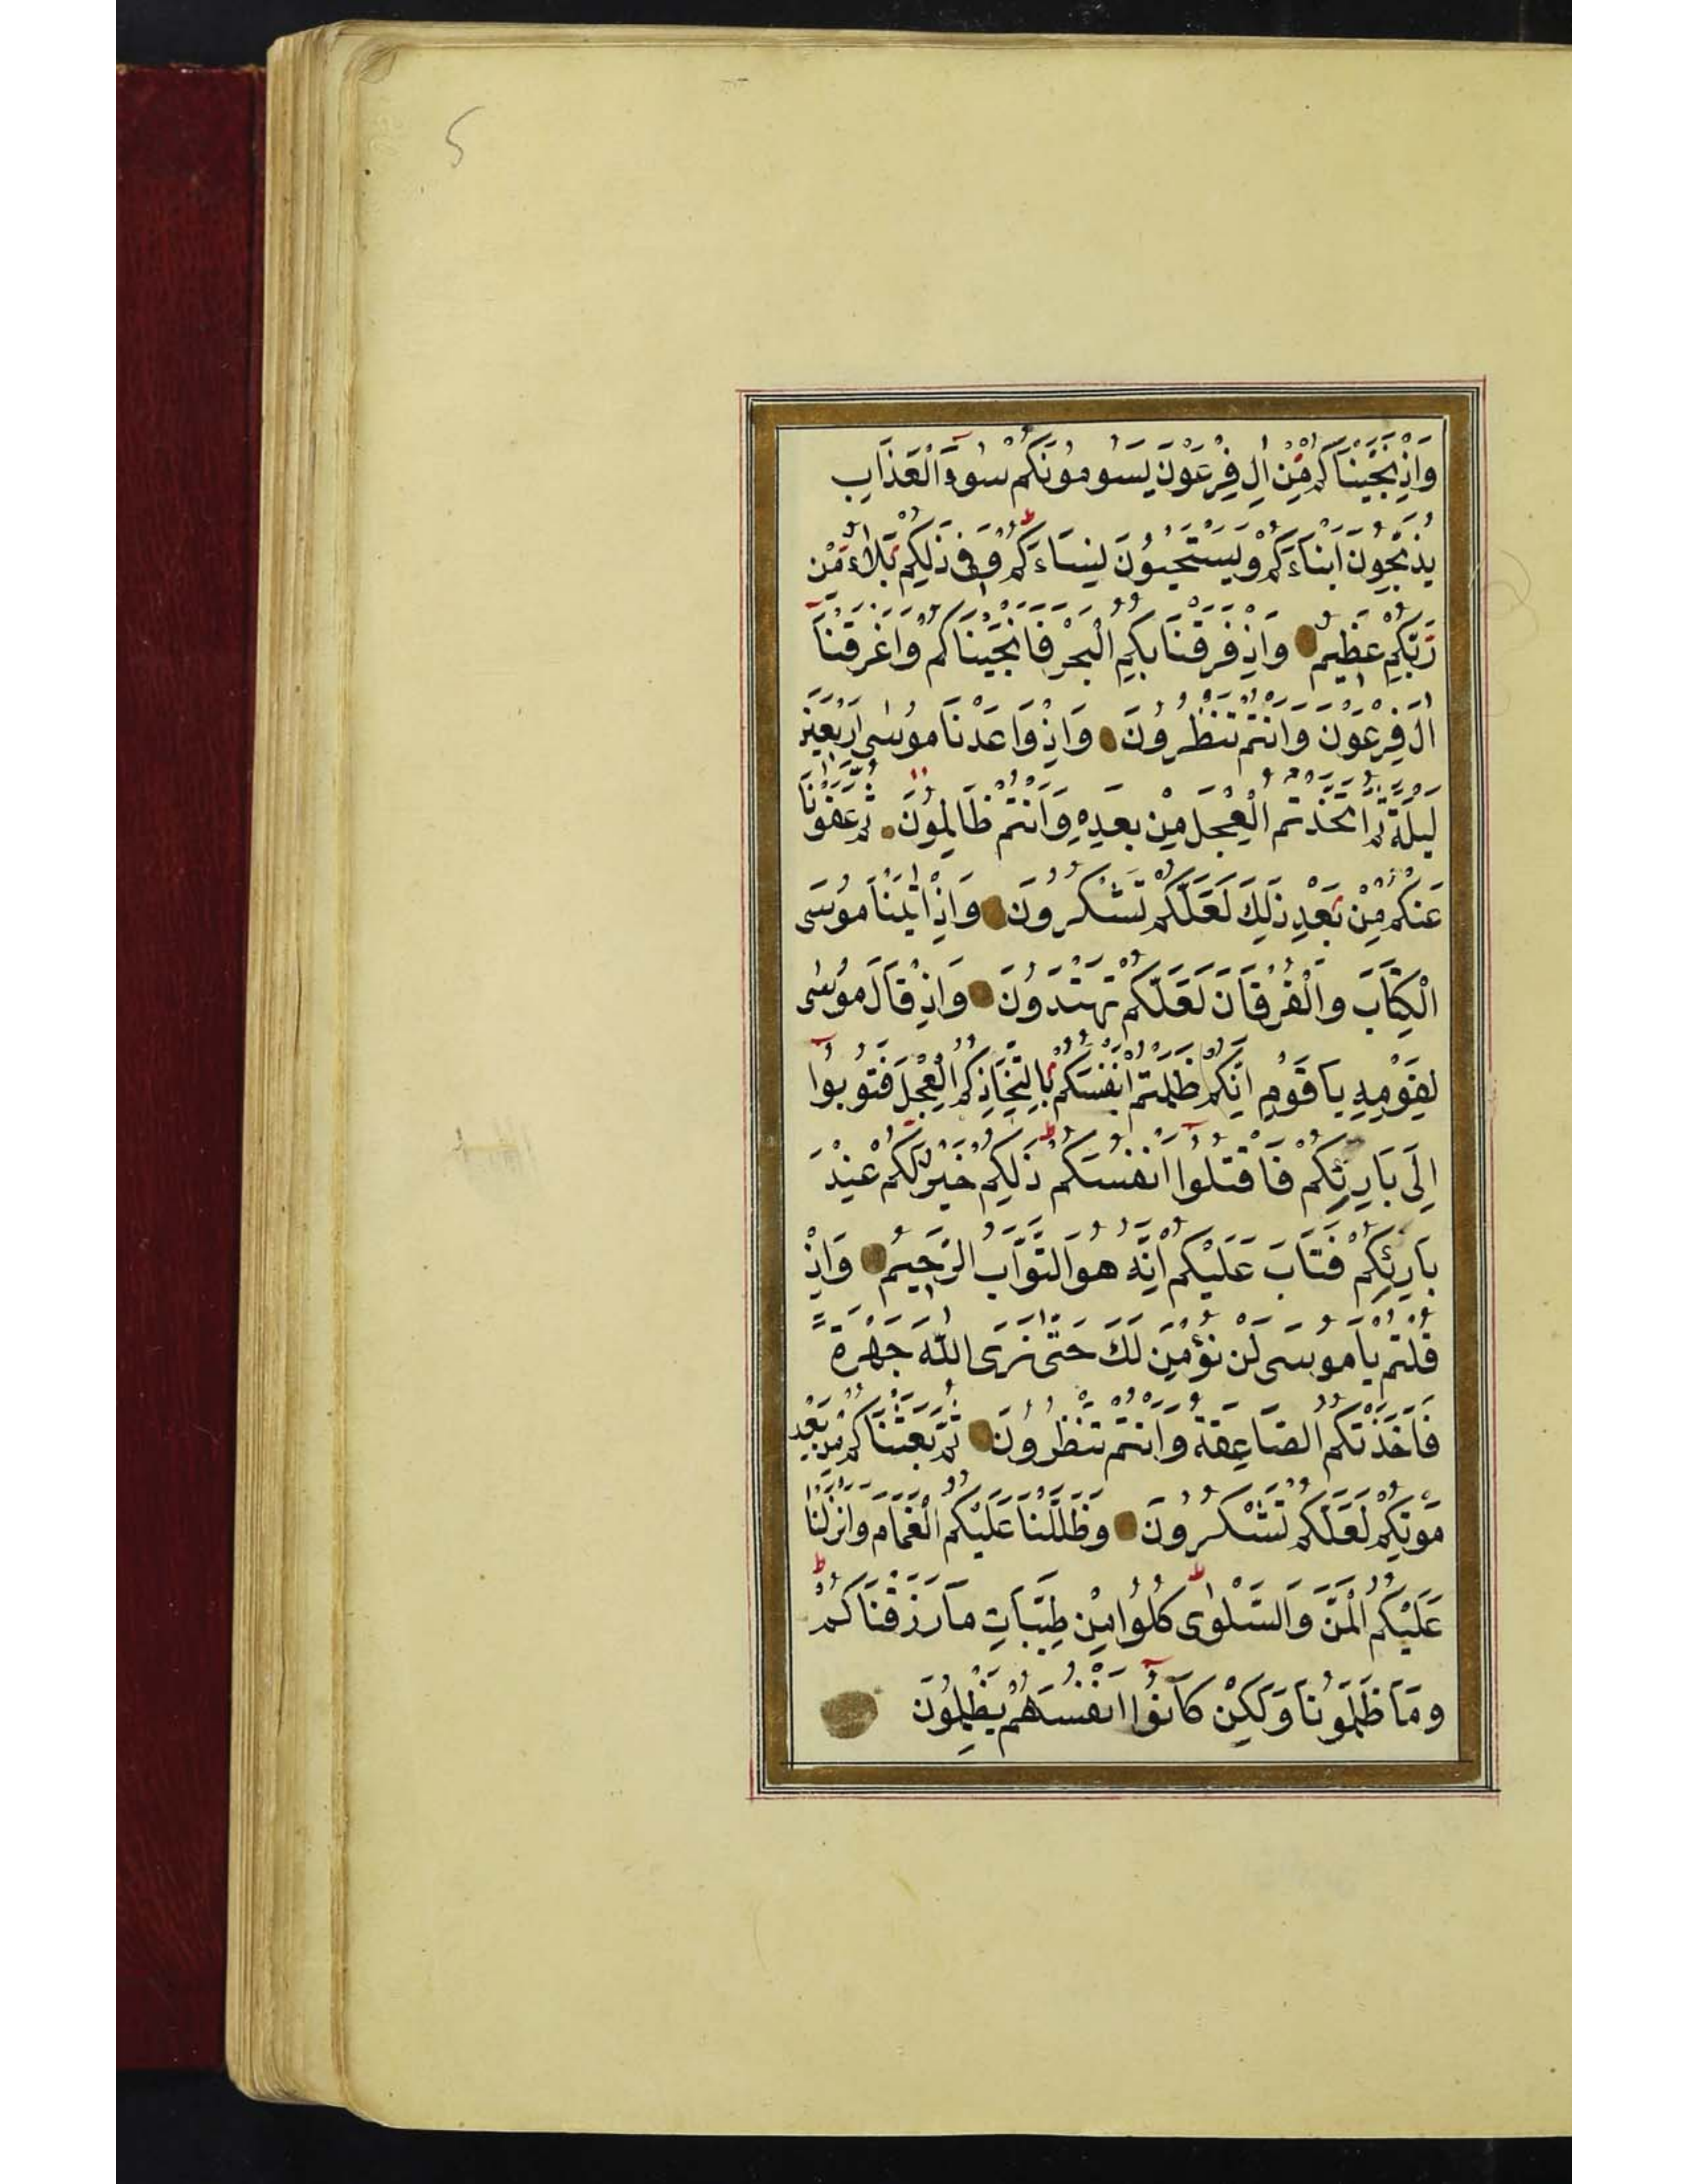 5
وَاِذْ نَجَّيْنَاكُمْ مِنْ اٰلِ فِرْعَوْنَ يَسُومُونَكُمْ سُوٓءَ الْعَذَابِ
يُذَبِّحُونَ اَبْنَاءَكُمْ وَيَسْتَحْيُونَ نِسَاءَكُمْ وَفِى ذٰلِكُمْ بَلَاءٌ مِنْ
رَبِّكُمْ عَظِيمٌ وَاِذْ فَرَقْنَا بِكُمُ الْبَحْرَ فَاَنْجَيْنَاكُمْ وَاَغْرَقْنَآ
اٰلَ فِرْعَوْنَ وَاَنْتُمْ تَنْظُرُونَ وَاِذْ وَاعَدْنَا مُوسٰى اَرْبَعِينَ
لَيْلَةً ثُمَّ اتَّخَذْتُمُ الْعِجْلَ مِنْ بَعْدِهِ وَاَنْتُمْ ظَالِمُونَ ثُمَّ عَفَوْنَا
عَنْكُمْ مِنْ بَعْدِ ذٰلِكَ لَعَلَّكُمْ تَشْكُرُونَ وَاِذْ اٰتَيْنَا مُوسَى
الْكِتَابَ وَالْفُرْقَانَ لَعَلَّكُمْ تَهْتَدُونَ وَاِذْ قَالَ مُوسٰى
لِقَوْمِهِ يَا قَوْمِ اِنَّكُمْ ظَلَمْتُمْ اَنْفُسَكُمْ بِاتِّخَاذِكُمُ الْعِجْلَ فَتُوبُوٓا
اِلَى بَارِئِكُمْ فَاقْتُلُوٓا اَنْفُسَكُمْ ذٰلِكُمْ خَيْرٌ لَكُمْ عِنْدَ
بَارِئِكُمْ فَتَابَ عَلَيْكُمْ اِنَّهُ هُوَ التَّوَّابُ الرَّحِيمُ وَاِذْ
قُلْتُمْ يَا مُوسَى لَنْ نُؤْمِنَ لَكَ حَتّٰى نَرَى اللّٰهَ جَهْرَةً
فَاَخَذَتْكُمُ الصَّاعِقَةُ وَاَنْتُمْ تَنْظُرُونَ ثُمَّ بَعَثْنَاكُمْ مِنْ بَعْدِ
مَوْتِكُمْ لَعَلَّكُمْ تَشْكُرُونَ وَظَلَّلْنَا عَلَيْكُمُ الْغَمَامَ وَاَنْزَلْنَا
عَلَيْكُمُ الْمَنَّ وَالسَّلْوٰى كُلُوا مِنْ طَيِّبَاتِ مَا رَزَقْنَاكُمْ
وَمَا ظَلَمُونَا وَلٰكِنْ كَانُوٓا اَنْفُسَهُمْ يَظْلِمُونَ